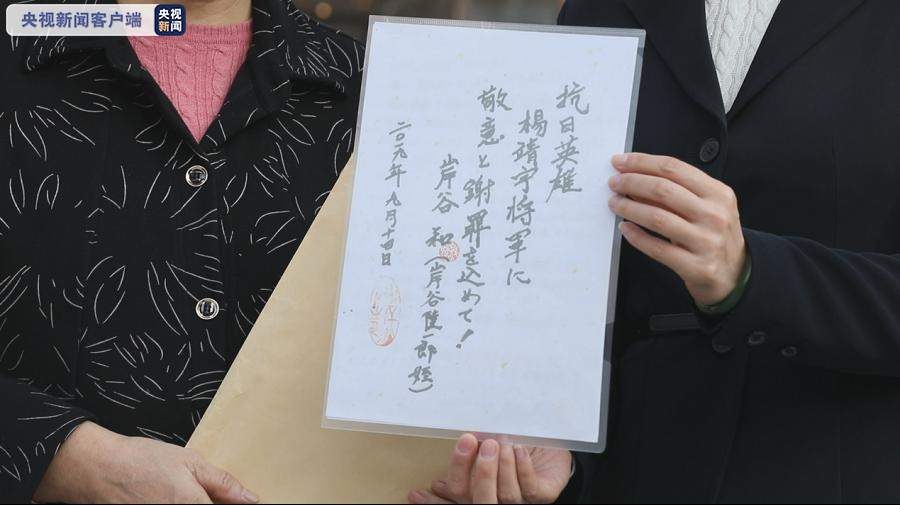 央视新闻客户端
央视
新闻
抗日英雄
楊靖宇将軍に
敬意と謝罪を込めて!
岸谷 和(岸谷隆一郎 姪)
二〇一九年九月十四日